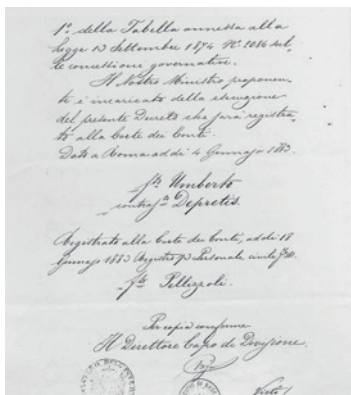 1º della Tabella annessa alla
legge 13 Settembre 1874 Nº 2086 sul-
le concessione governative.
Il Nostro Ministro proponen-
te è incaricato della esecuzione
del presente Decreto che sarà registra-
to alla Corte dei Conti.
Dato a Roma addì 4 Gennajo 1883.
fto Umberto
contrafto Depretis.
Registrato alla Corte dei Conti, addì 18
Gennajo 1883 Registro Personale civile
fto Pellizzoli.
Per copia conforme
Il Direttore Capo de Divisione.
Visto